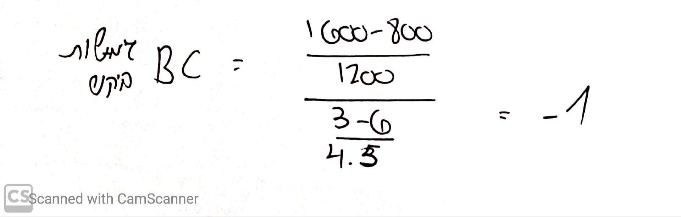 גמישות
ביקוש
BC = ((1600-800)/1200)/((3-6)/4.5) = -1
CS Scanned with CamScanner